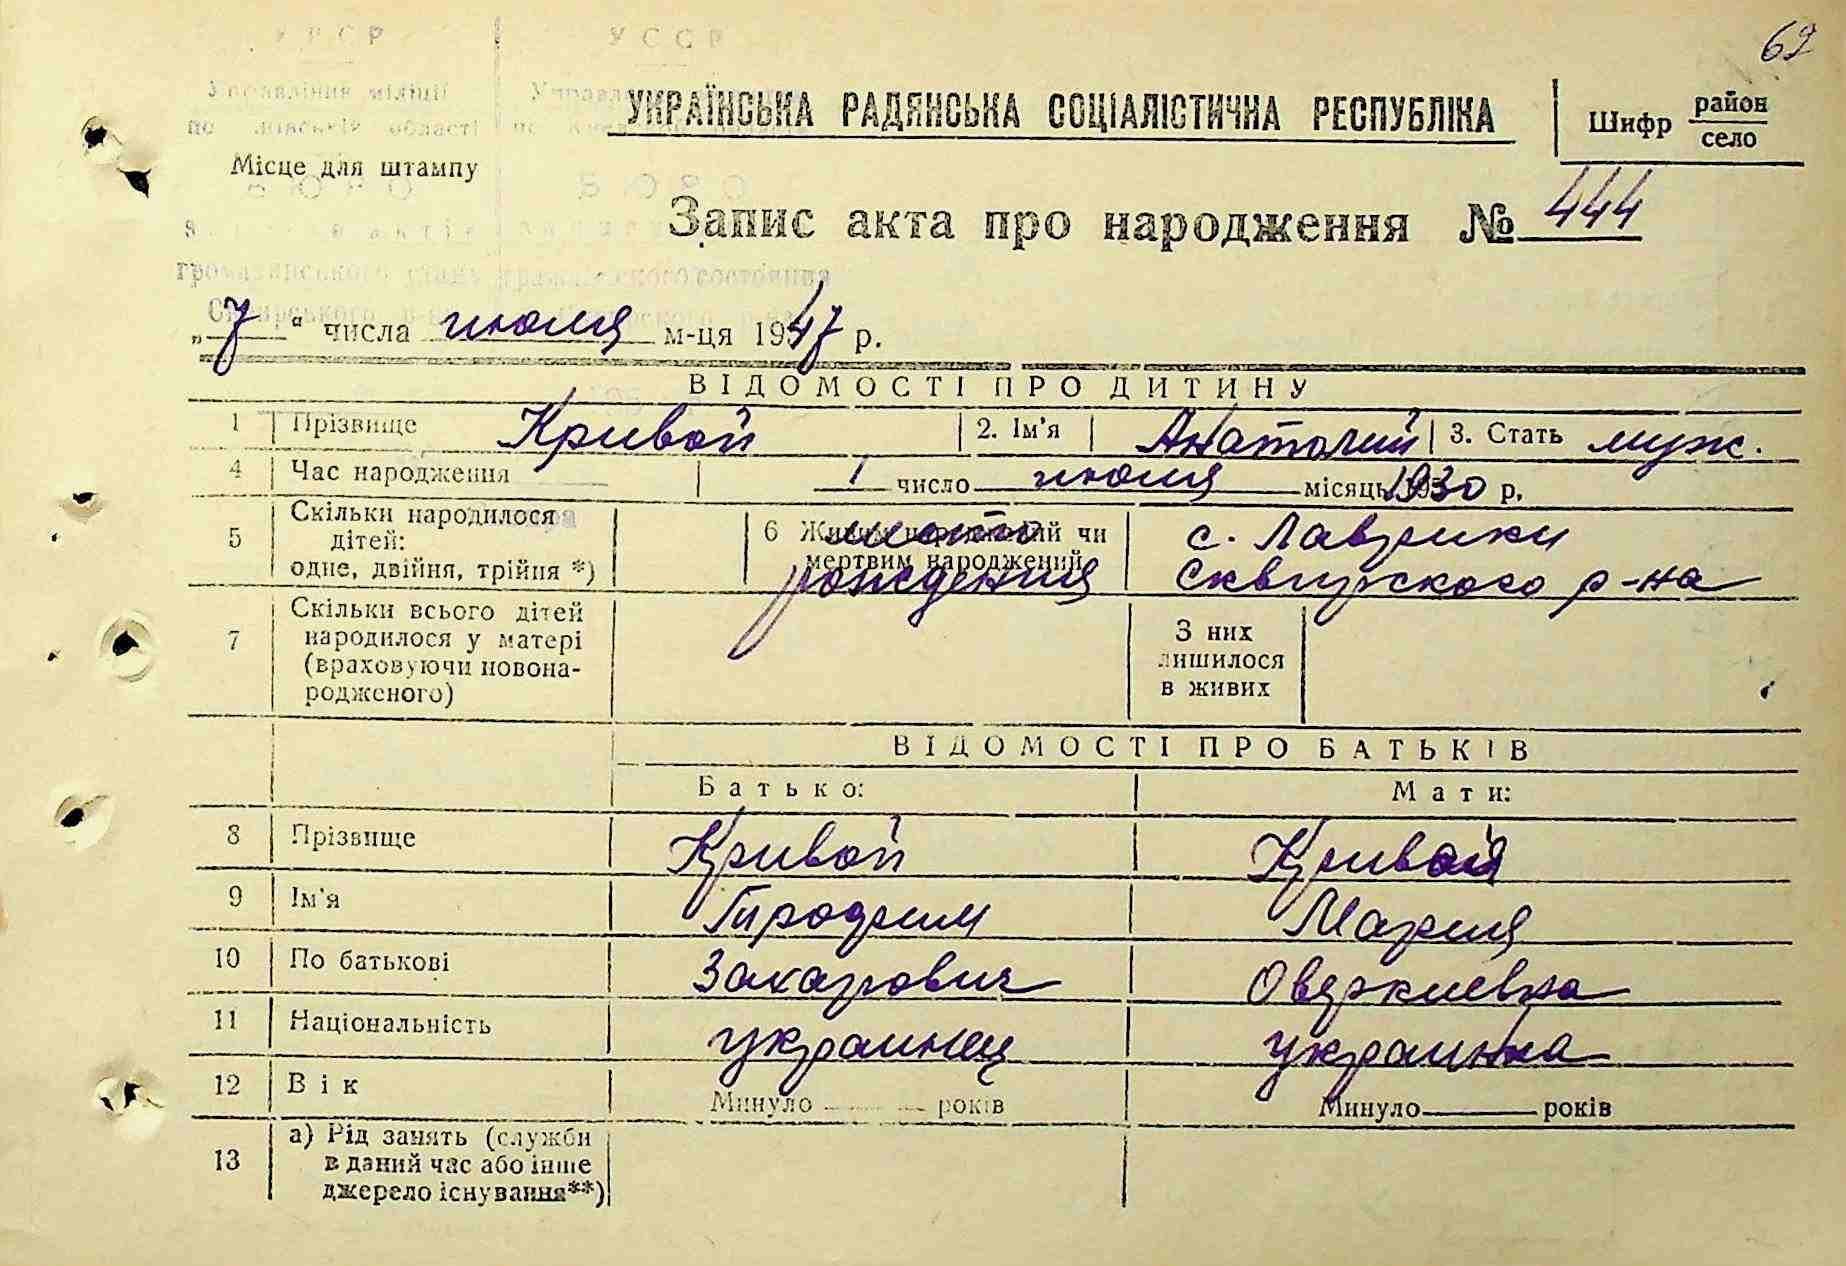 69
УССР
УКРАЇНСЬКА РАДЯНСЬКА СОЦІАЛІСТИЧНА РЕСПУБЛІКА
Шифр район
село
Місце для штампу
БЮРО
Запис акта про народження № 444
„7“ числа июля м-ця 1947 р.
ВІДОМОСТІ ПРО ДИТИНУ
1 Прізвище Кривой 2. Ім'я Анатолий 3. Стать муж.
4 Час народження 1 число июля місяць 1930 р.
5 Скільки народилося дітей: одне, двійня, трійня *)
6 Живим народжений чи мертвим народжений
место рождения
с. Лаврики
Сквирского р-на
7 Скільки всього дітей народилося у матері (враховуючи новонародженого)
З них лишилося в живих
ВІДОМОСТІ ПРО БАТЬКІВ
Батько: Мати:
8 Прізвище Кривой Кривая
9 Ім'я Мария
10 По батькові Захарович Оверкиевна
11 Національність украинец украинка
12 Вік Минуло років Минуло років
13 а) Рід занять (служби в даний час або інше джерело існування**)